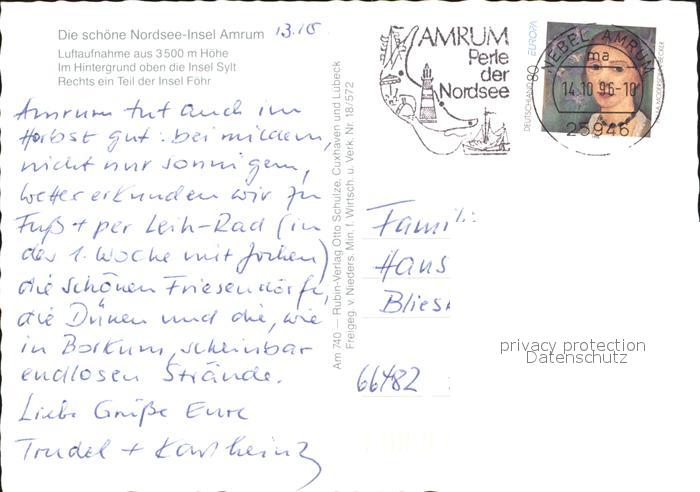 Die schöne Nordsee-Insel Amrum 13.10
Luftaufnahme aus 3500 m Höhe
Im Hintergrund oben die Insel Sylt
Rechts ein Teil der Insel Föhr
Amrum tut auch im
Herbst gut: bei mildem,
nicht nur sonnigem,
Wetter erkunden wir zu
Fuß + per Leih-Rad (in
der 1. Woche mit Jochen)
die schönen Friesendörfer,
die Dünen und die, wie
in Borkum, scheinbar
endlosen Strände.
Liebe Grüße Eure
Trudel + Karlheinz
Am 740 — Rubin-Verlag Otto Schulze, Cuxhaven und Lübeck
Freigeg. v. Nieders. Min. f. Wirtsch. u. Verk. Nr. 18/572
AMRUM
Perle
der
Nordsee
DEUTSCHLAND 80 EUROPA
NEBEL, AMRUM
ma
14.10.96-10
25946
Famil
Hans
Blies
66482
privacy protection
Datenschutz